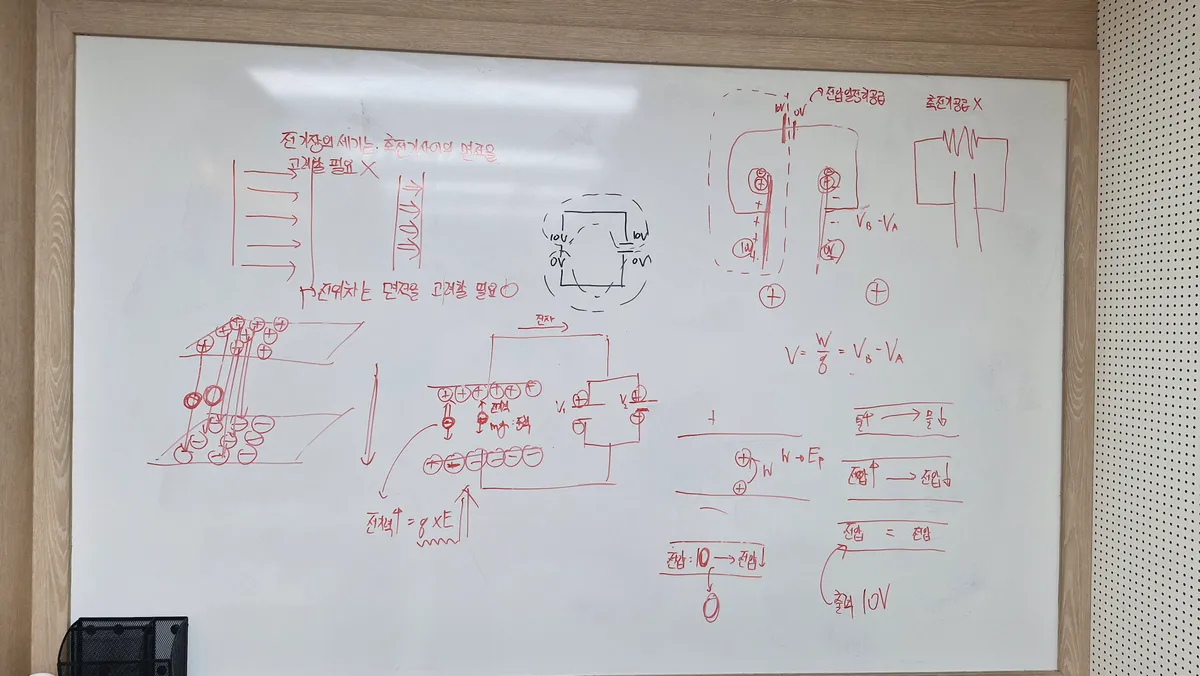 전기장의 세기는 축전기사이의 면적을
고려할 필요 X
전위차는 면적을 고려할 필요 O
10V
0V
10V
0V
10V
0V
전압일정하공급
축전기공급 X
+
+
+
-
-
V_B - V_A
+
+
V = W/q = V_B - V_A
전자
+ + + + + +
전기력
mg : 중력
V₁
V₂
전기력↑ = q x E
+
W
W → Ep
물↑ → 물↓
전압↑ → 전압↓
전압 = 전압
출력 10V
전압 : 10 → 전압↓
0